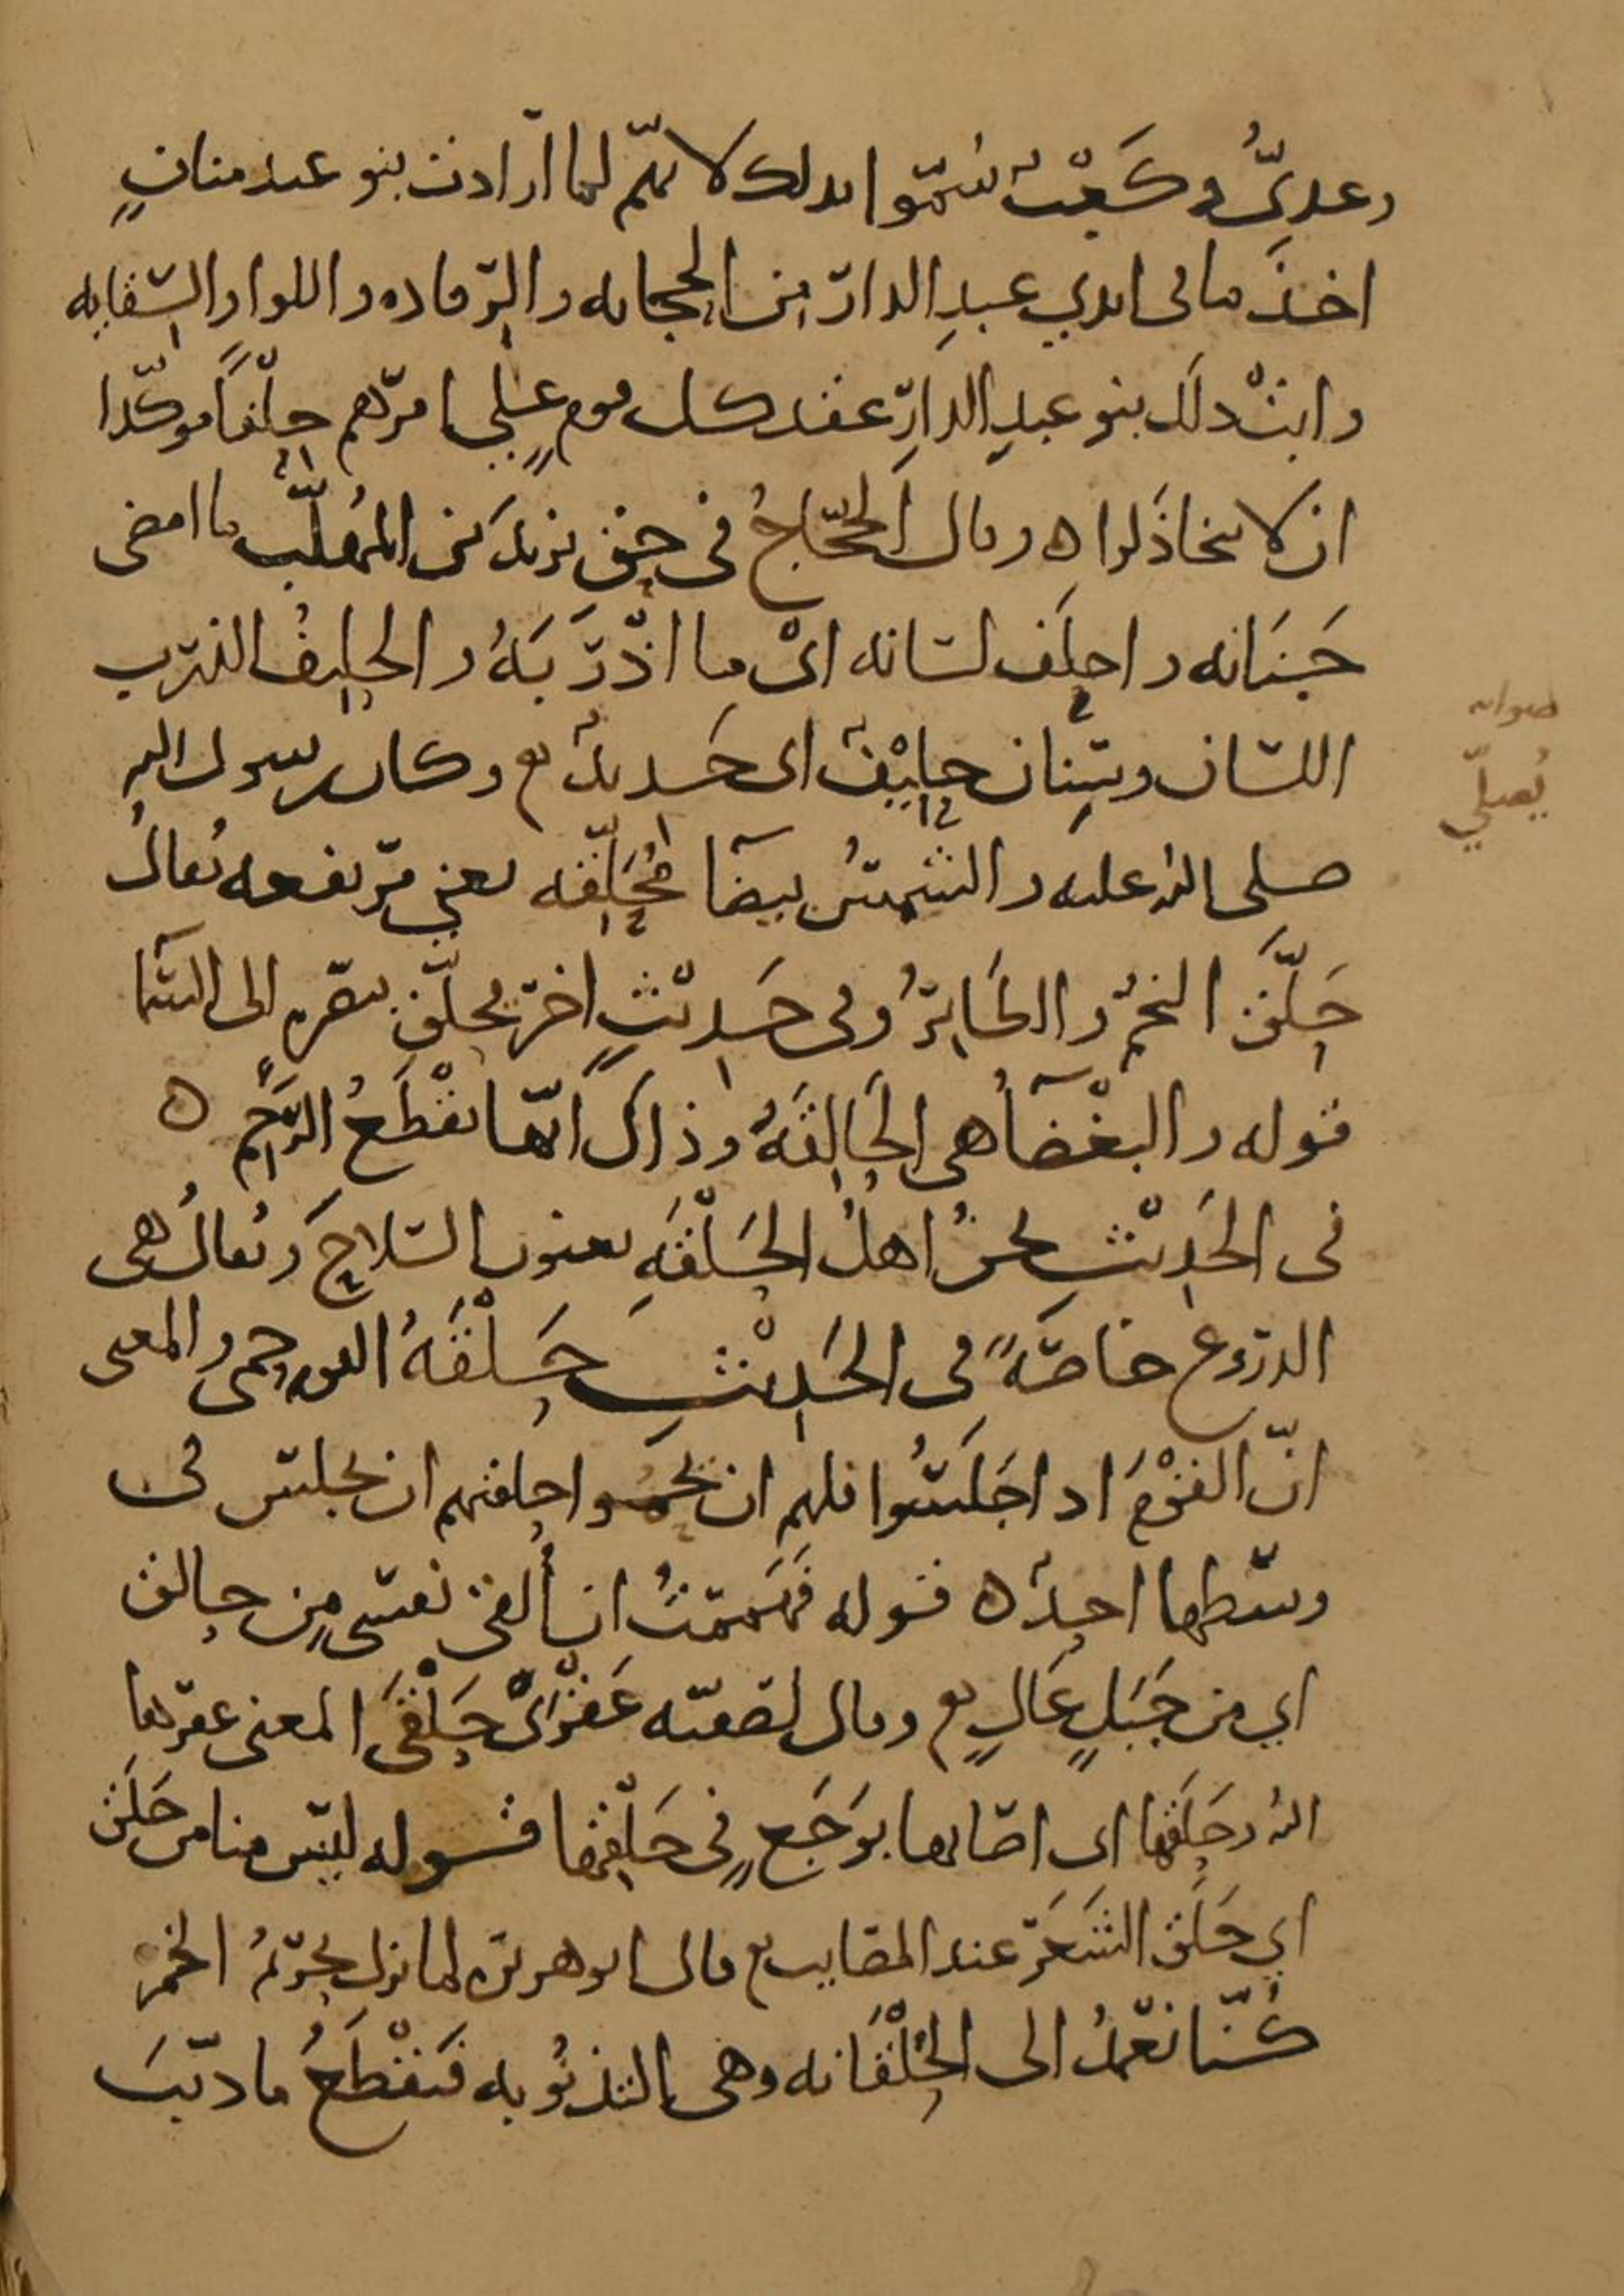 وعديٌّ وكعبٌ سُمّوا بذلك لانّهم لما ارادت بنو عبد منافٍ
اخذَ ما في ايدي عبدِ الدار من الحجابه والرفاده واللوا والسقايه
وابتْ ذلك بنو عبدِ الدارِ عقد كل قومٍ على امرهم حِلْفًا موكّدا
ان لا يتخاذَلوا ه وقال الحجّاجُ في حق يزيد بن المُهَلَّب ما امضى
جَنَانه واحلَف لسانه اىْ ما اذْرَبَهُ والحليفُ الذرب
اللسان وسِنان حليْفٌ اى حَديدٌ وكان رسول الله
صلى الله عليه والشمسُ بيضآ مُحَلِّقه يعني مرتفعه يُقالُ
حَلَّقَ النجمُ والطَايرُ وفي حَديْثٍ اخر فحلّق ببصره الى السمآ
قوله والبغْضآُ هي الحَالِقَهُ وذاك انّها تقْطَعُ الرَّحِم ه
في الحَدِيْثِ نحنُ اهلُ الحَلْقَهِ يعنون السّلاحَ ويُقالُ هي
الدروع خاصّهً في الحَدِيْثِ حَلْقَهُ القوم حمى والمعنى
انّ القوْمَ اذا جَلَسُوا فلهم ان يحموا حلقتهم ان يجلس في
وسطها احدٌ ه قوله فهَممْتُ ان أُلقى نفسى مِن حالق
اي من جَبَلٍ عَالٍ وقال لصفيّه عَقْرَىْ حَلْقَى المعنى عقرها
الله وحَلَقَها اى اصابها بوَجَعٍ في حَلْقِها قوله ليس منا من حَلَقَ
اي حَلَقَ الشَعَر عند المصايب قال ابو هريره لما نزل تحريمُ الخمر
كُنّا نعْمِدُ الى الحُلْقَانه وهي التذنُوبه فنَقْطَعُ ما ذنّبَ
صوابه
يُصلّي